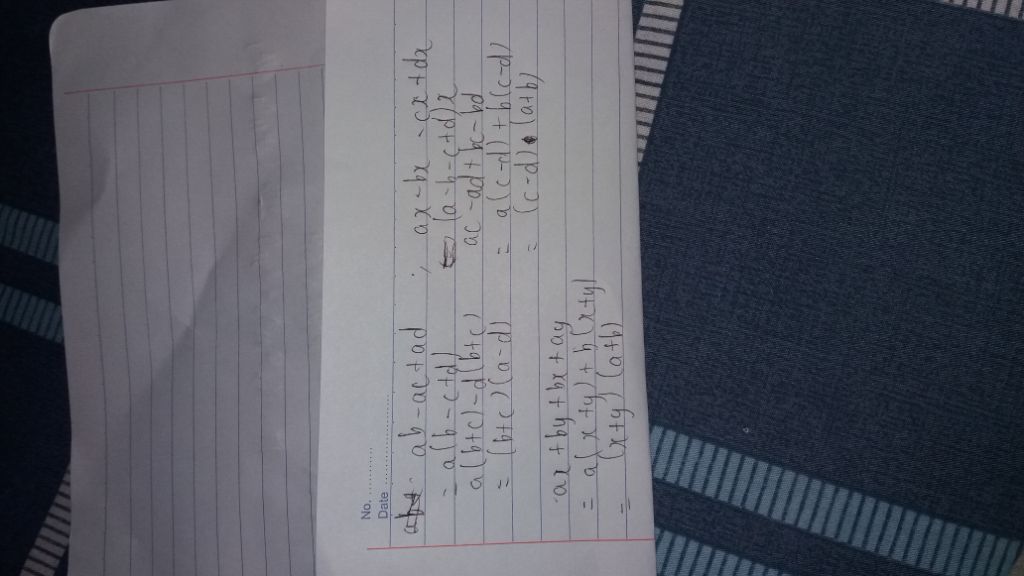 No. ..........
Date ....................
ab - ac + ad ; ax - bx - cx + dx
= a(b - c + d) = (a - b - c + d)x
a(b + c) - d(b + c) ac - ad + bc - bd
= (b + c)(a - d) = a(c - d) + b(c - d)
= (c - d) (a + b)
ax + by + bx + ay
= a(x + y) + b(x + y)
= (x + y)(a + b)